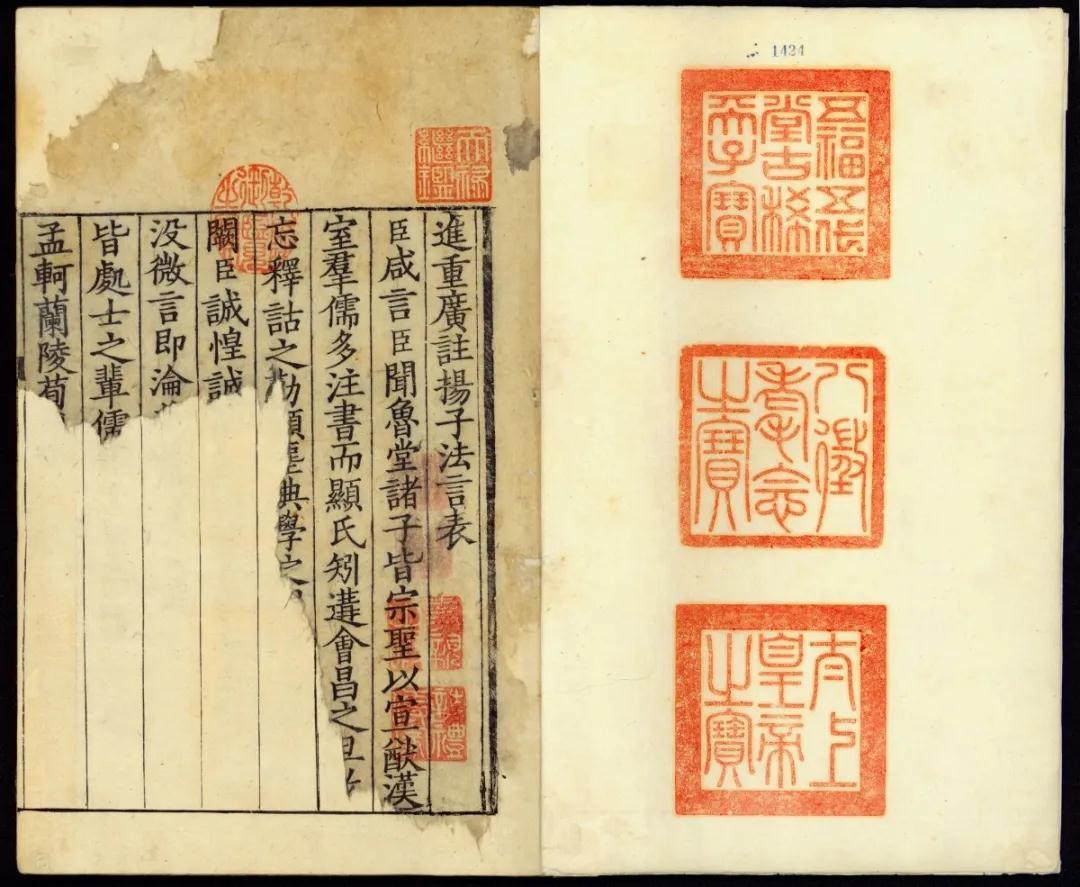 1424
五福五代
堂古稀
天子寶
八徵
耄念
之寶
太上
皇帝
之寶
天祿
繼鑑
乾隆
御覽
之寶
進重廣註揚子法言表
臣咸言臣聞魯堂諸子皆宗聖以宣猷漢
室羣儒多注書而顯氏矧遘會昌之旦
忘釋詁之 典學之
闕臣誠惶誠
没微言即淪
皆處士之輩儒
孟軻蘭陵荀